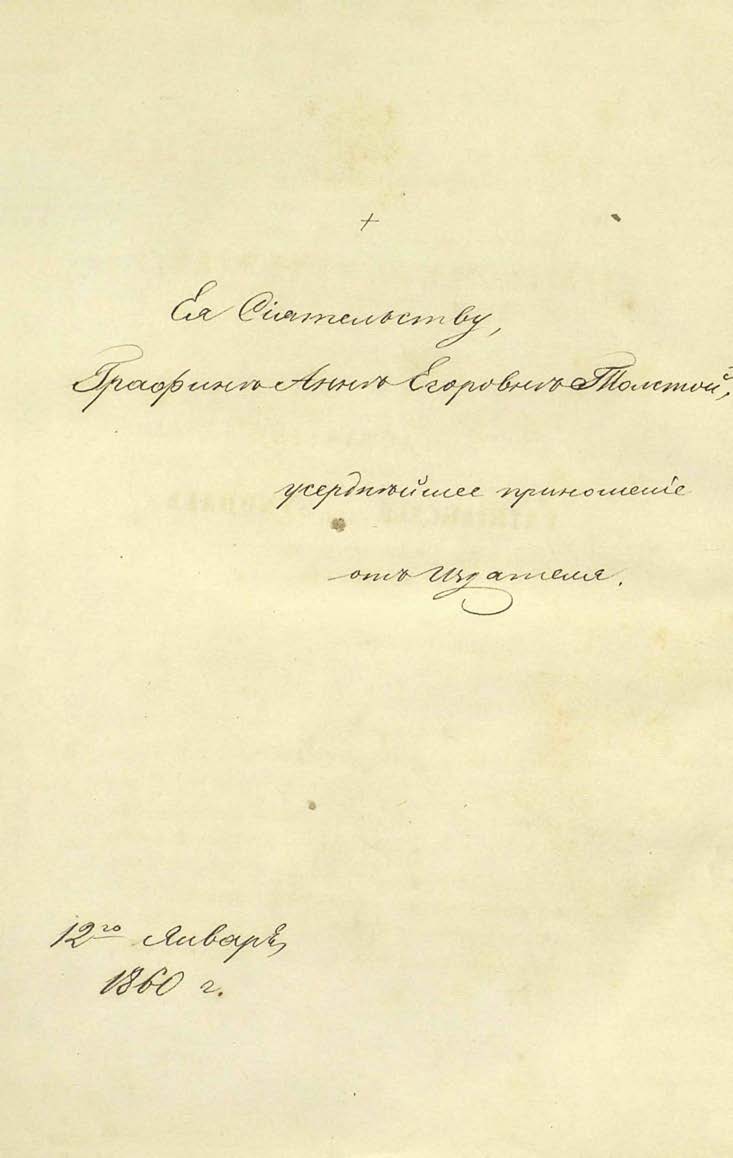 +
Ея Сіятельству,
Графинѣ Аннѣ Егоровнѣ Толстой,
усерднѣйшее приношеніе
отъ Издателя.
12го Января,
1860 г.